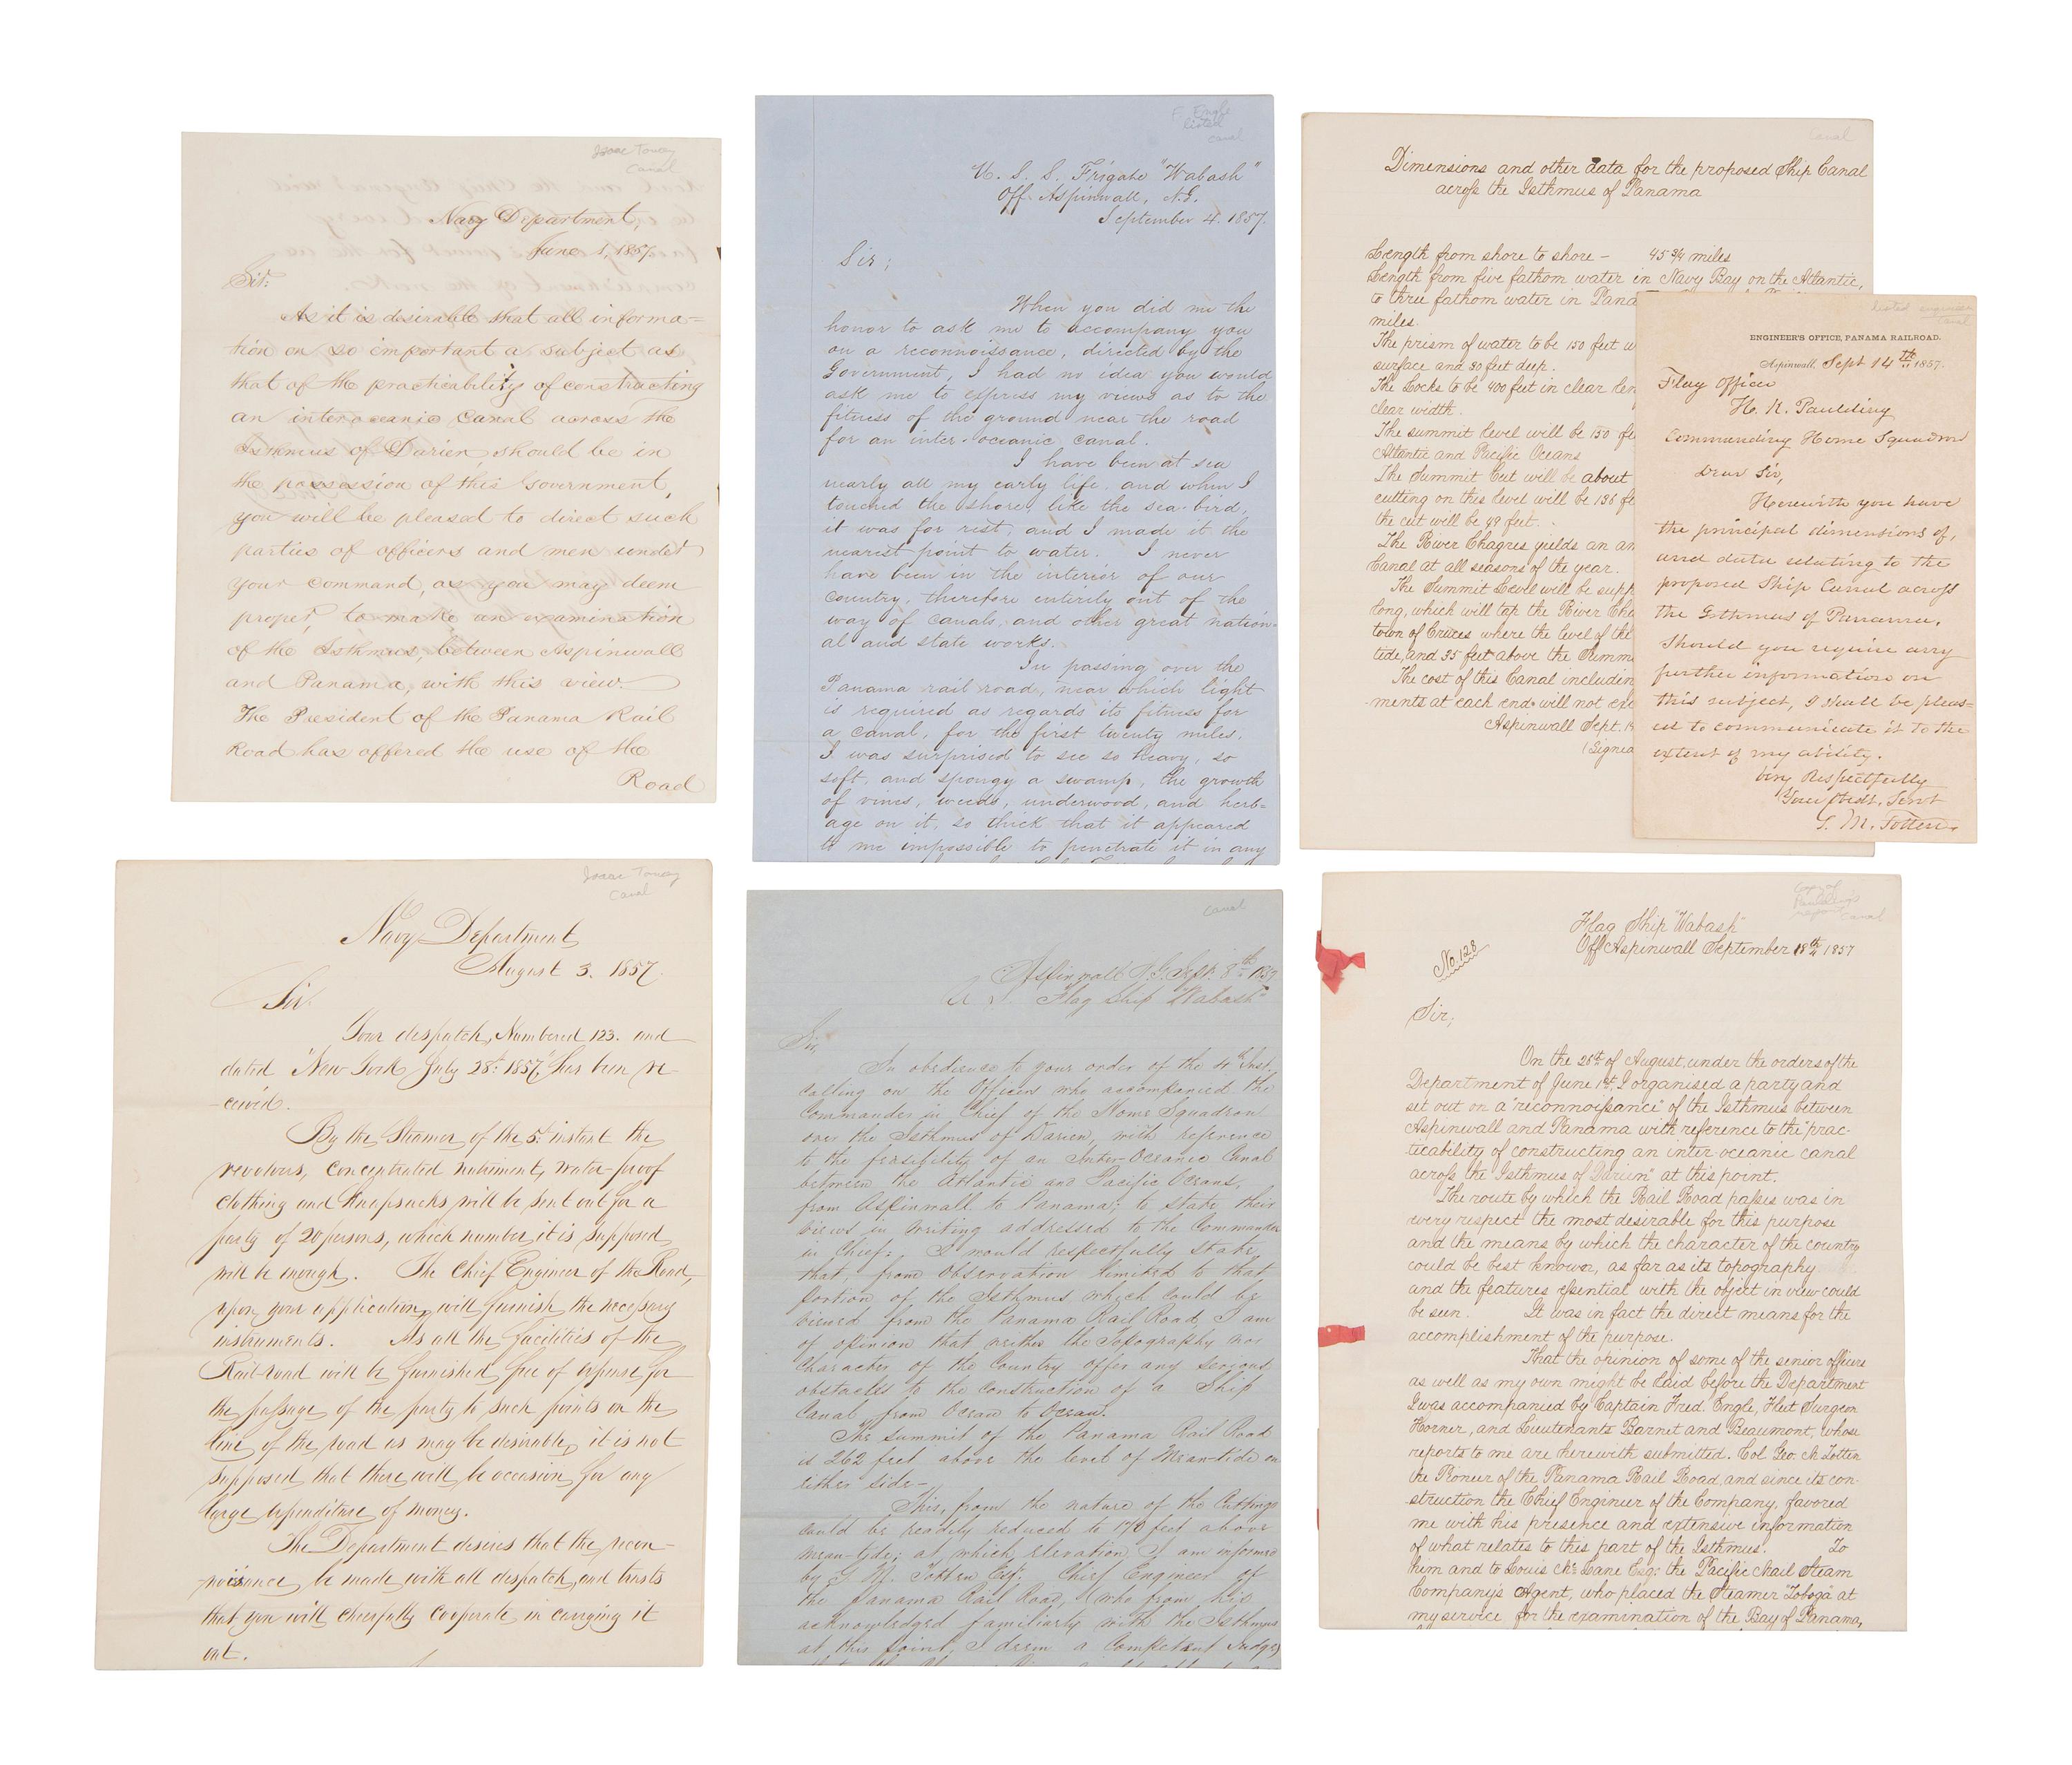 Isaac Toucey
Canal
Navy Department,
June 1, 1857.
Sir:
As it is desirable that all informa-
tion on so important a subject as
that of the practicability of constructing
an interoceanic Canal across the
Isthmus of Darien, should be in
the possession of this Government,
you will be pleased to direct such
parties of officers and men under
your command, as you may deem
proper, to make an examination
of the Isthmus, between Aspinwall
and Panama, with this view.
The President of the Panama Rail
Road has offered the use of the
Road
F. Engle
listed
canal
U. S. S. Frigate "Wabash"
Off Aspinwall, N.G.
September 4. 1857.
Sir;
When you did me the
honor to ask me to accompany you
on a reconnoissance, directed by the
Government, I had no idea you would
ask me to express my views as to the
fitness of the ground near the road
for an inter-oceanic canal.
I have been at sea
nearly all my early life, and when I
touched the shore, like the sea-bird,
it was for rest, and I made it the
nearest point to water. I never
have been in the interior of our
country, therefore entirely out of the
way of canals, and other great nation-
al and state works.
In passing over the
Panama rail road, near which light
is required as regards its fitness for
a canal, for the first twenty miles,
I was surprised to see so heavy, so
soft, and spongy a swamp, the growth
of vines, weeds, underwood, and herb-
age on it, so thick that it appeared
to me impossible to penetrate it in any
canal
Dimensions and other data for the proposed Ship Canal
across the Isthmus of Panama
Length from shore to shore - 45 3/4 miles
Length from five fathom water in Navy Bay on the Atlantic,
to three fathom water in Pana
miles.
The prism of water to be 150 feet w
surface and 30 feet deep.
The Locks to be 400 feet in clear len
clear width.
The summit level will be 150 fe
Atlantic and Pacific Oceans
The Summit Cut will be about
cutting on this level will be 136 fe
the cut will be 49 feet.
The River Chagres yields an am
Canal at all seasons of the year.
The Summit Level will be supp
long, which will tap the River Cha
town of Cruces where the level of the
tide, and 35 feet above the Summi
The cost of this Canal includin
-ments at each end will not exc
Aspinwall Sept. 1
(Signed
listed engineer
canal
ENGINEER'S OFFICE, PANAMA RAILROAD.
Aspinwall, Sept 14th 1857.
Flag Officer
H. N. Paulding
Commanding Home Squadron
Dear Sir,
Herewith you have
the principal dimensions of,
and data relating to the
proposed Ship Canal across
the Isthmus of Panama.
Should you require any
further information on
this subject, I shall be pleas=
ed to communicate it to the
extent of my ability.
Very Respectfully
Your Obedt. Servt
G. M. Totten
Isaac Toucey
Canal
Navy Department
August 3. 1857.
Sir.
Your despatch, Numbered 123. and
dated "New York July 28th 1857," has been re-
-ceived.
By the Steamer of the 5th instant the
revolvers, concentrated nutriment, water-proof
clothing and Knapsacks will be sent out for a
party of 20 persons, which number, it is supposed
will be enough. The Chief Engineer of the Road,
upon your application, will furnish the necessary
instruments. As all the facilities of the
Rail-road will be furnished, free of expense for
the passage of the party to such points on the
line of the road as may be desirable, it is not
supposed that there will be occasion for any
large expenditure of money.
The Department desires that the recon-
-noisance be made with all despatch, and trusts
that you will cheerfully cooperate in carrying it
out.
canal
Aspinwall N.G. Sept. 8th 1857
U. S. Flag Ship "Wabash"
Sir,
In obedience to your order of the 4th Inst.
calling on the Officers who accompanied the
Commander in Chief of the Home Squadron
over the Isthmus of Darien, with reference
to the feasibility of an Inter-Oceanic Canal
between the Atlantic and Pacific Oceans,
from Aspinwall to Panama; to state their
views in writing addressed to the Commander
in Chief:, I would respectfully state,
that, from observation limited to that
portion of the Isthmus which could be
viewed from the Panama Rail Road, I am
of opinion that neither the Topography nor
Character of the Country offer any serious
obstacles to the construction of a Ship
Canal from Ocean to Ocean.
The summit of the Panama Rail Road
is 262 feet above the level of Mean-tide on
either side-
This, from the nature of the Cuttings
could be readily reduced to 170 feet above
mean-tide; at which elevation, I am informed
by G. M. Totten Esq. Chief Engineer of
the Panama Rail Road, (who from his
acknowledged familiarity with the Isthmus
at this point, I deem a Competent Judge)
Copy of
Paulding's
report canal
Flag Ship "Wabash"
Off Aspinwall September 18th 1857
No. 128
Sir;
On the 26th of August, under the orders of the
Department of June 1st, I organised a party and
set out on a "reconnoissance" of the Isthmus between
Aspinwall and Panama with reference to the "prac-
ticability of constructing an inter-oceanic canal
across the Isthmus of Darien" at this point.
The route by which the Rail Road passes was in
every respect the most desirable for this purpose
and the means by which the character of the country
could be best known, as far as its topography
and the features essential with the object in view could
be seen. It was in fact the direct means for the
accomplishment of the purpose.
That the opinion of some of the senior officers
as well as my own might be laid before the Department
I was accompanied by Captain Fred. Engle, Fleet Surgeon
Horner, and Lieutenants Barnet and Beaumont, whose
reports to me are herewith submitted. Col Geo. M Totten
the Pioneer of the Panama Rail Road, and since its con-
struction the Chief Engineer of the Company, favored
me with his presence and extensive information
of what relates to this part of the Isthmus. To
him and to Louis McLane Esq: the Pacific Mail Steam
Company's Agent, who placed the Steamer "Toboga" at
my service for the examination of the Bay of Panama,